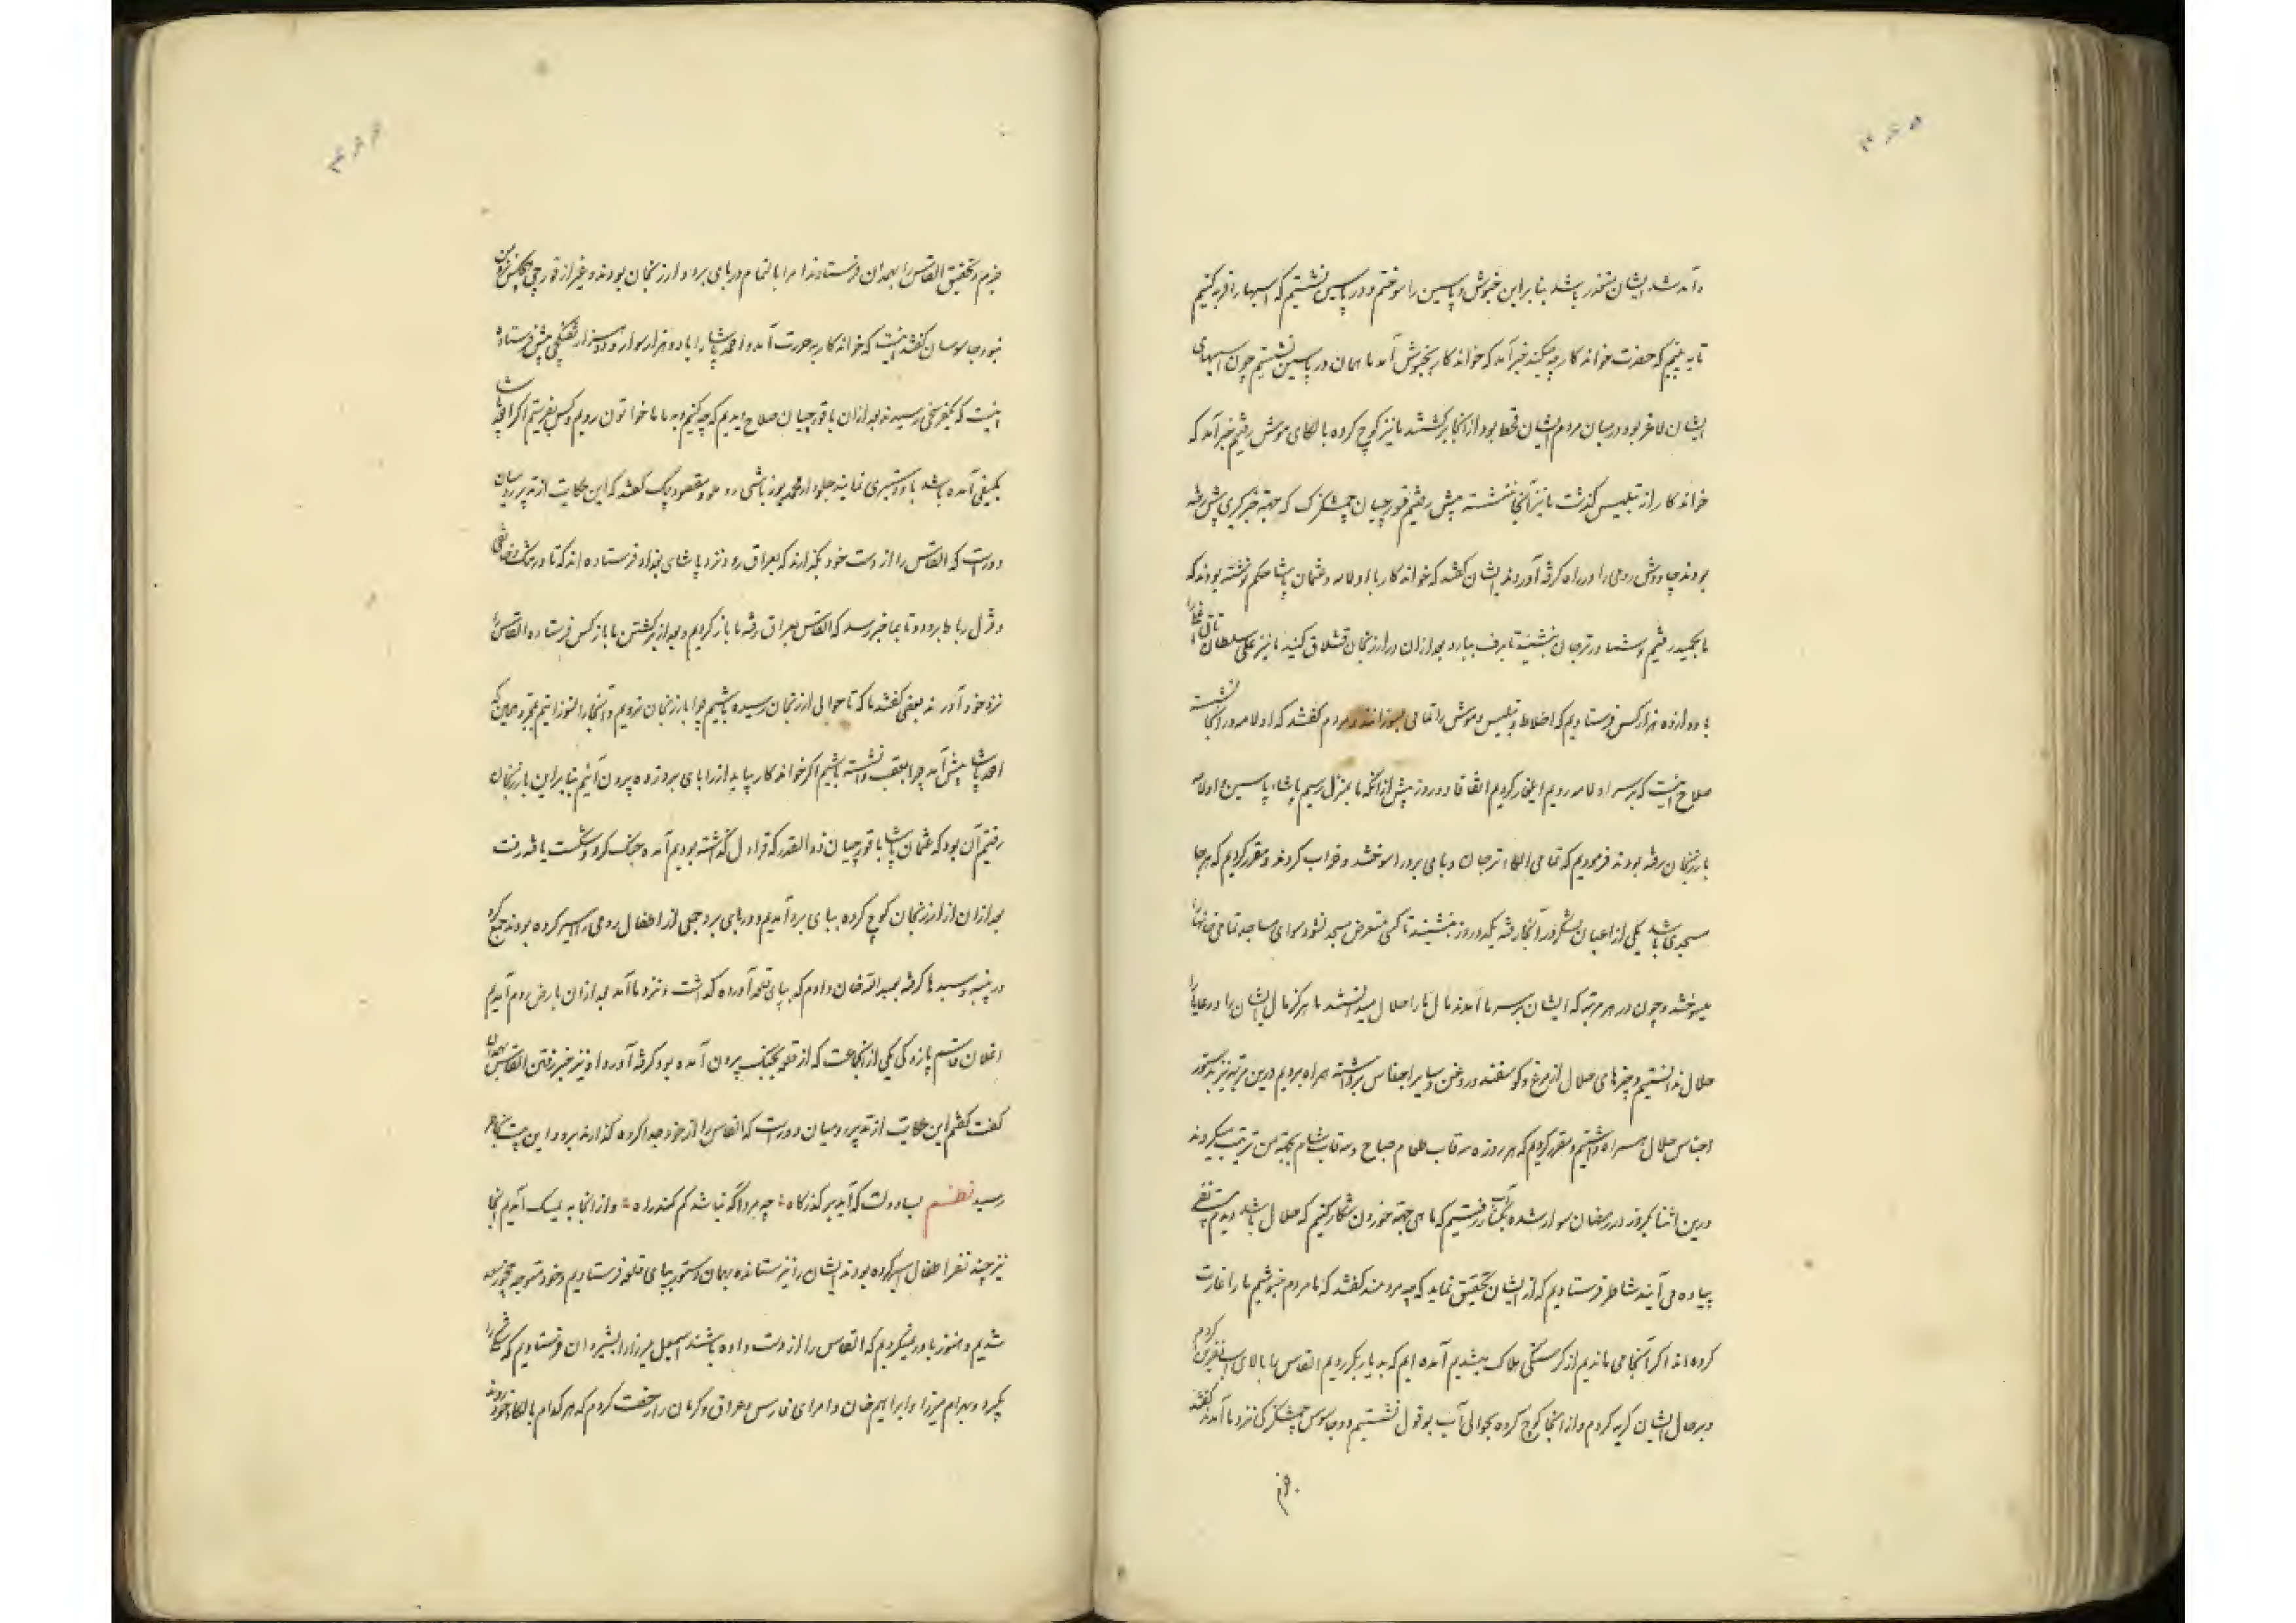 ۳۶۵
و آمد شد ایشان متعذر باشد بنا برین خنوش و پاسین را سوختم و در پاسین نشستیم که اسبها را فربه کنیم
تا به بینیم که حضرت خواندکار چه میکند خبر آمد که خواندکار بخنوش آمد ما همان در پاسین نشستیم چون اسبهای
ایشان لاغر بود و در میان مردم ایشان قحط بود از آنجا برگشتند ما نیز کوچ کرده بالکای موش رفتیم خبر آمد که
خواندکار از تبلیس گذشت ما نیز آنجا ننشسته پیش رفتیم قورچیان چمشکزک که جهة خبرگیری پیش رفته
بودند چاوش رومی را در راه گرفته آوردند ایشان گفتند که خواندکار با اولامه و عثمان پاشا حکم نوشته بودند که
ما بحمید رفتیم و شما در ترجان بنشینید تا برف ببارد بعد از آن در ارزنجان قشلاق کنید ما نیز علی سلطان
با دوازده هزار کس فرستادیم که اخلاط و تبلیس و موش را تمامی بسوزانند و مردم گفتند که اولامه در آنجا نشسته
صلاح اینست که بر سر اولامه رویم ایلغار کردیم اتفاقا دو روز پیش از آنکه ما بمنزل رسیم پاشاء پاسین و اولامه
بارزنجان رفته بودند فرمودیم که تمامی الکاء ترجان و بای برد را سوختند و خراب کردند و مقرر کردیم که هر جا
مسجدی باشد یکی از اعیان لشکر در آنجا رفته یکدو روز بنشینند تا کسی متعرض مسجد نشود سوای مساجد تمامی خانها را
میسوختند و چون در هر مرتبه که ایشان بر سر ما آمدند مال ما را حلال میدانستند ما هرگز مال ایشان را و رعایا را
حلال ندانستیم و چیزهای حلال از مرغ و گوسفند و روغن و سایر اجناس برداشته همراه بردیم درین مرتبه نیز بدستور
اجناس حلال همراه داشتیم و مقرر کردیم که هر روزه سه قاب طعام صباح و سه قاب شام بجهة من ترتیب میکردند
درین اثنا یکروز در رمضان سوار شده بکنار آب رفتیم که ماهی جهة خوردن شکار کنیم که حلال باشد دیدم بیست نفر
پیاده می آیند شاطر فرستادیم که از ایشان تحقیق نماید که چه مردمند گفتند که ما مردم خنوشیم ما را غارت
کرده اند اگر آنجا می ماندیم از گرسنگی هلاک میشدیم آمده ایم که بدیار بکر رویم القاس را بالای اسب نفرین کردم
و بر حال ایشان گریه کردم و از آنجا کوچ کرده بحوالی آب بوقول نشستیم دو جاسوس چمشکزکی نزد ما آمدند گفتند
۳۶۶
جزم و تحقیق القاس را بهمدان فرستادند امرا بالتمام در بای برد و ارزنجان بودند و غیر از قورچی کس پیش من
نبود جاسوسان گفتند اینست که خواندکار بدورت آمد و احمد پاشا را با دو هزار سوار و دو هزار تفنگچی پیش فرستاده
اینست که بیکفرسخی رسیدند بعد از آن با قورچیان صلاح دیدیم که چه کنیم و به ماما خاتون رویم و کس بفرستیم اگر احمد پاشا
بکیفی آمده باشد با او ستیزی نمایند جلودار محمد یوزباشی روملو و مقصود بیک گفتند که این حکایت از تدبیر رومیان
دورست که القاس را از دست خود بگذارند که بعراق رود نزد پاشای بغداد فرستاده اند که تا در مشک
و قزل رباط برود و تا بما خبر رسد که القاس بعراق رفته ما باز گردیم و بعد از برگشتن ما باز کس فرستاده القاس را
نزد خود آورند بعضی گفتند ما که تا حوالی ارزنجان رسیده باشیم چرا بارزنجان نرویم و آنجا را نسوزانیم بمجرد همین که
احمد پاشا پیش آمد چرا بعقب نشسته باشیم اگر خواندکار بیاید از راه بای برد زده بیرون آئیم بنابراین بارزنجان
رفتیم آن بود که عثمان پاشا با قورچیان ذوالقدر که قراول گذاشته بودیم آمده جنگ کرد و شکست یافته رفت
بعد از آن از ارزنجان کوچ کرده ببای برد آمدیم و در بای برد جمعی از اطفال رومی را اسیر کرده بودند جمع کرد
در پنبه و سبدها گرفته بعبدالله خان دادم که بپای قلعه آورده گذاشت و نزد ما آمد بعد از آن بارض روم آمدیم
اغلان قاسم پازوکی یکی از آنجماعت که از قلعه بیرون آمده بود گرفته آورد او نیز خبر رفتن القاس بهمدان
گفت گفتم این حکایت از تدبیر رومیان دورست که القاس را از خود جدا کرده گذارند برود این بیت بخاطر
رسید نظم بسا دولت که آید بر گذرگاه چه مرد آگه نباشد گم کند راه و از آنجا به آمدیم آنجا
نیز چند نفر اطفال اسیر کرده بودند ایشان را نیز ستانده بهمان دستور بپای قلعه فرستادیم و خود متوجه سعد
شدیم و هنوز باور نمیکردیم که القاس را از دست داده باشند اسمعیل میرزا را بشیروان فرستادیم که شکی را
بگیرد و بهرام میرزا و ابراهیم خان و امرای فارس و عراق و کرمان را رخصت کردم که هر کدام بالکاء خود روند